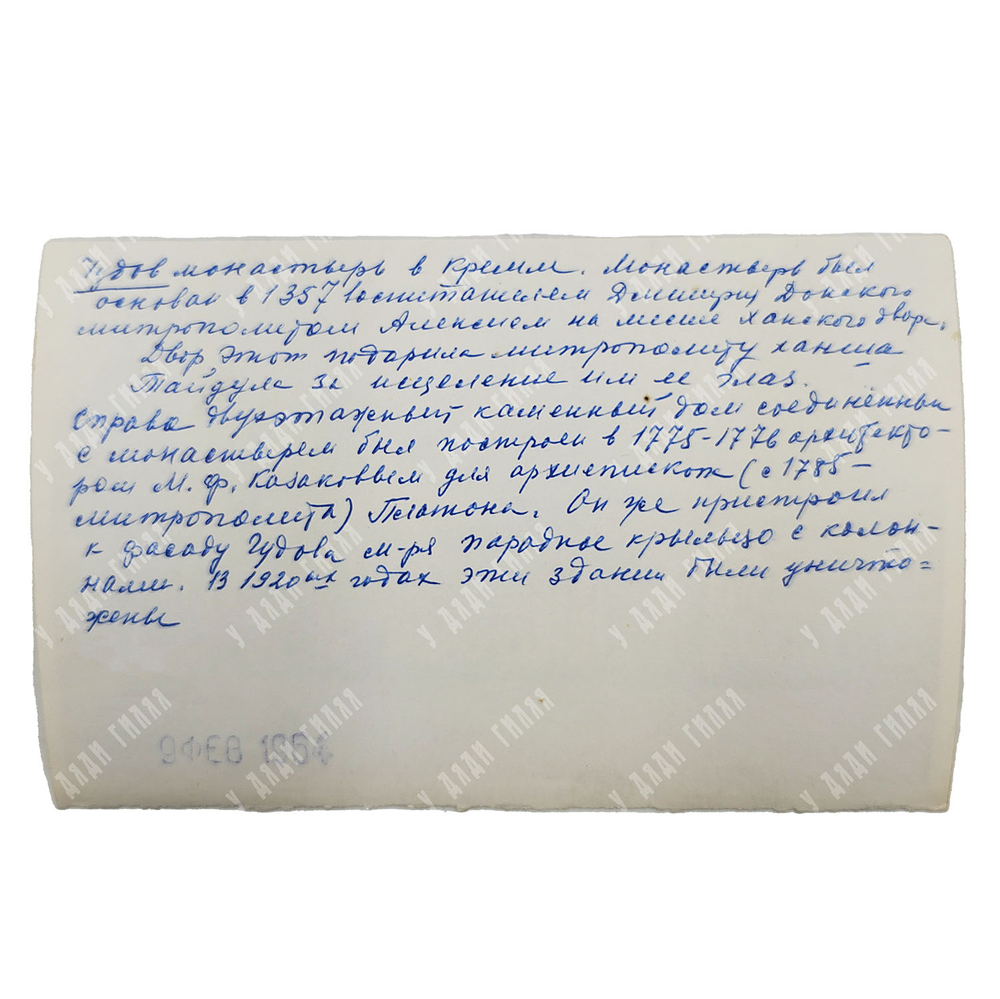 Чудов монастырь в Кремле. Монастырь был
основан в 1357 воспитателем Дмитрия Донского
митрополитом Алексием на месте Ханского двора.
Двор этот подарила митрополиту ханша
Тайдула за исцеление им ее глаз.
Справа двухэтажный каменный дом соединенный
с монастырем был построен в 1775-1776 архитекто-
ром М. Ф. Казаковым для архиепископа (с 1785-
митрополита) Платона. Он же пристроил
к фасаду Чудова м-ря парадное крыльцо с колон-
нами. В 1920ых годах эти здания были уничто=
жены
9 ФЕВ 1964
У ДЯДИ ГИЛЯЯ